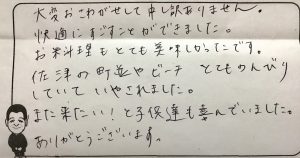 大変おさわがせして申し訳ありません。
快適にすごすことができました。
お料理もとても美味しかったです。
佐津の町並やビーチ とてものんびり
していて いやされました。
また来たい！と子供達も喜んでいました。
ありがとうございます。